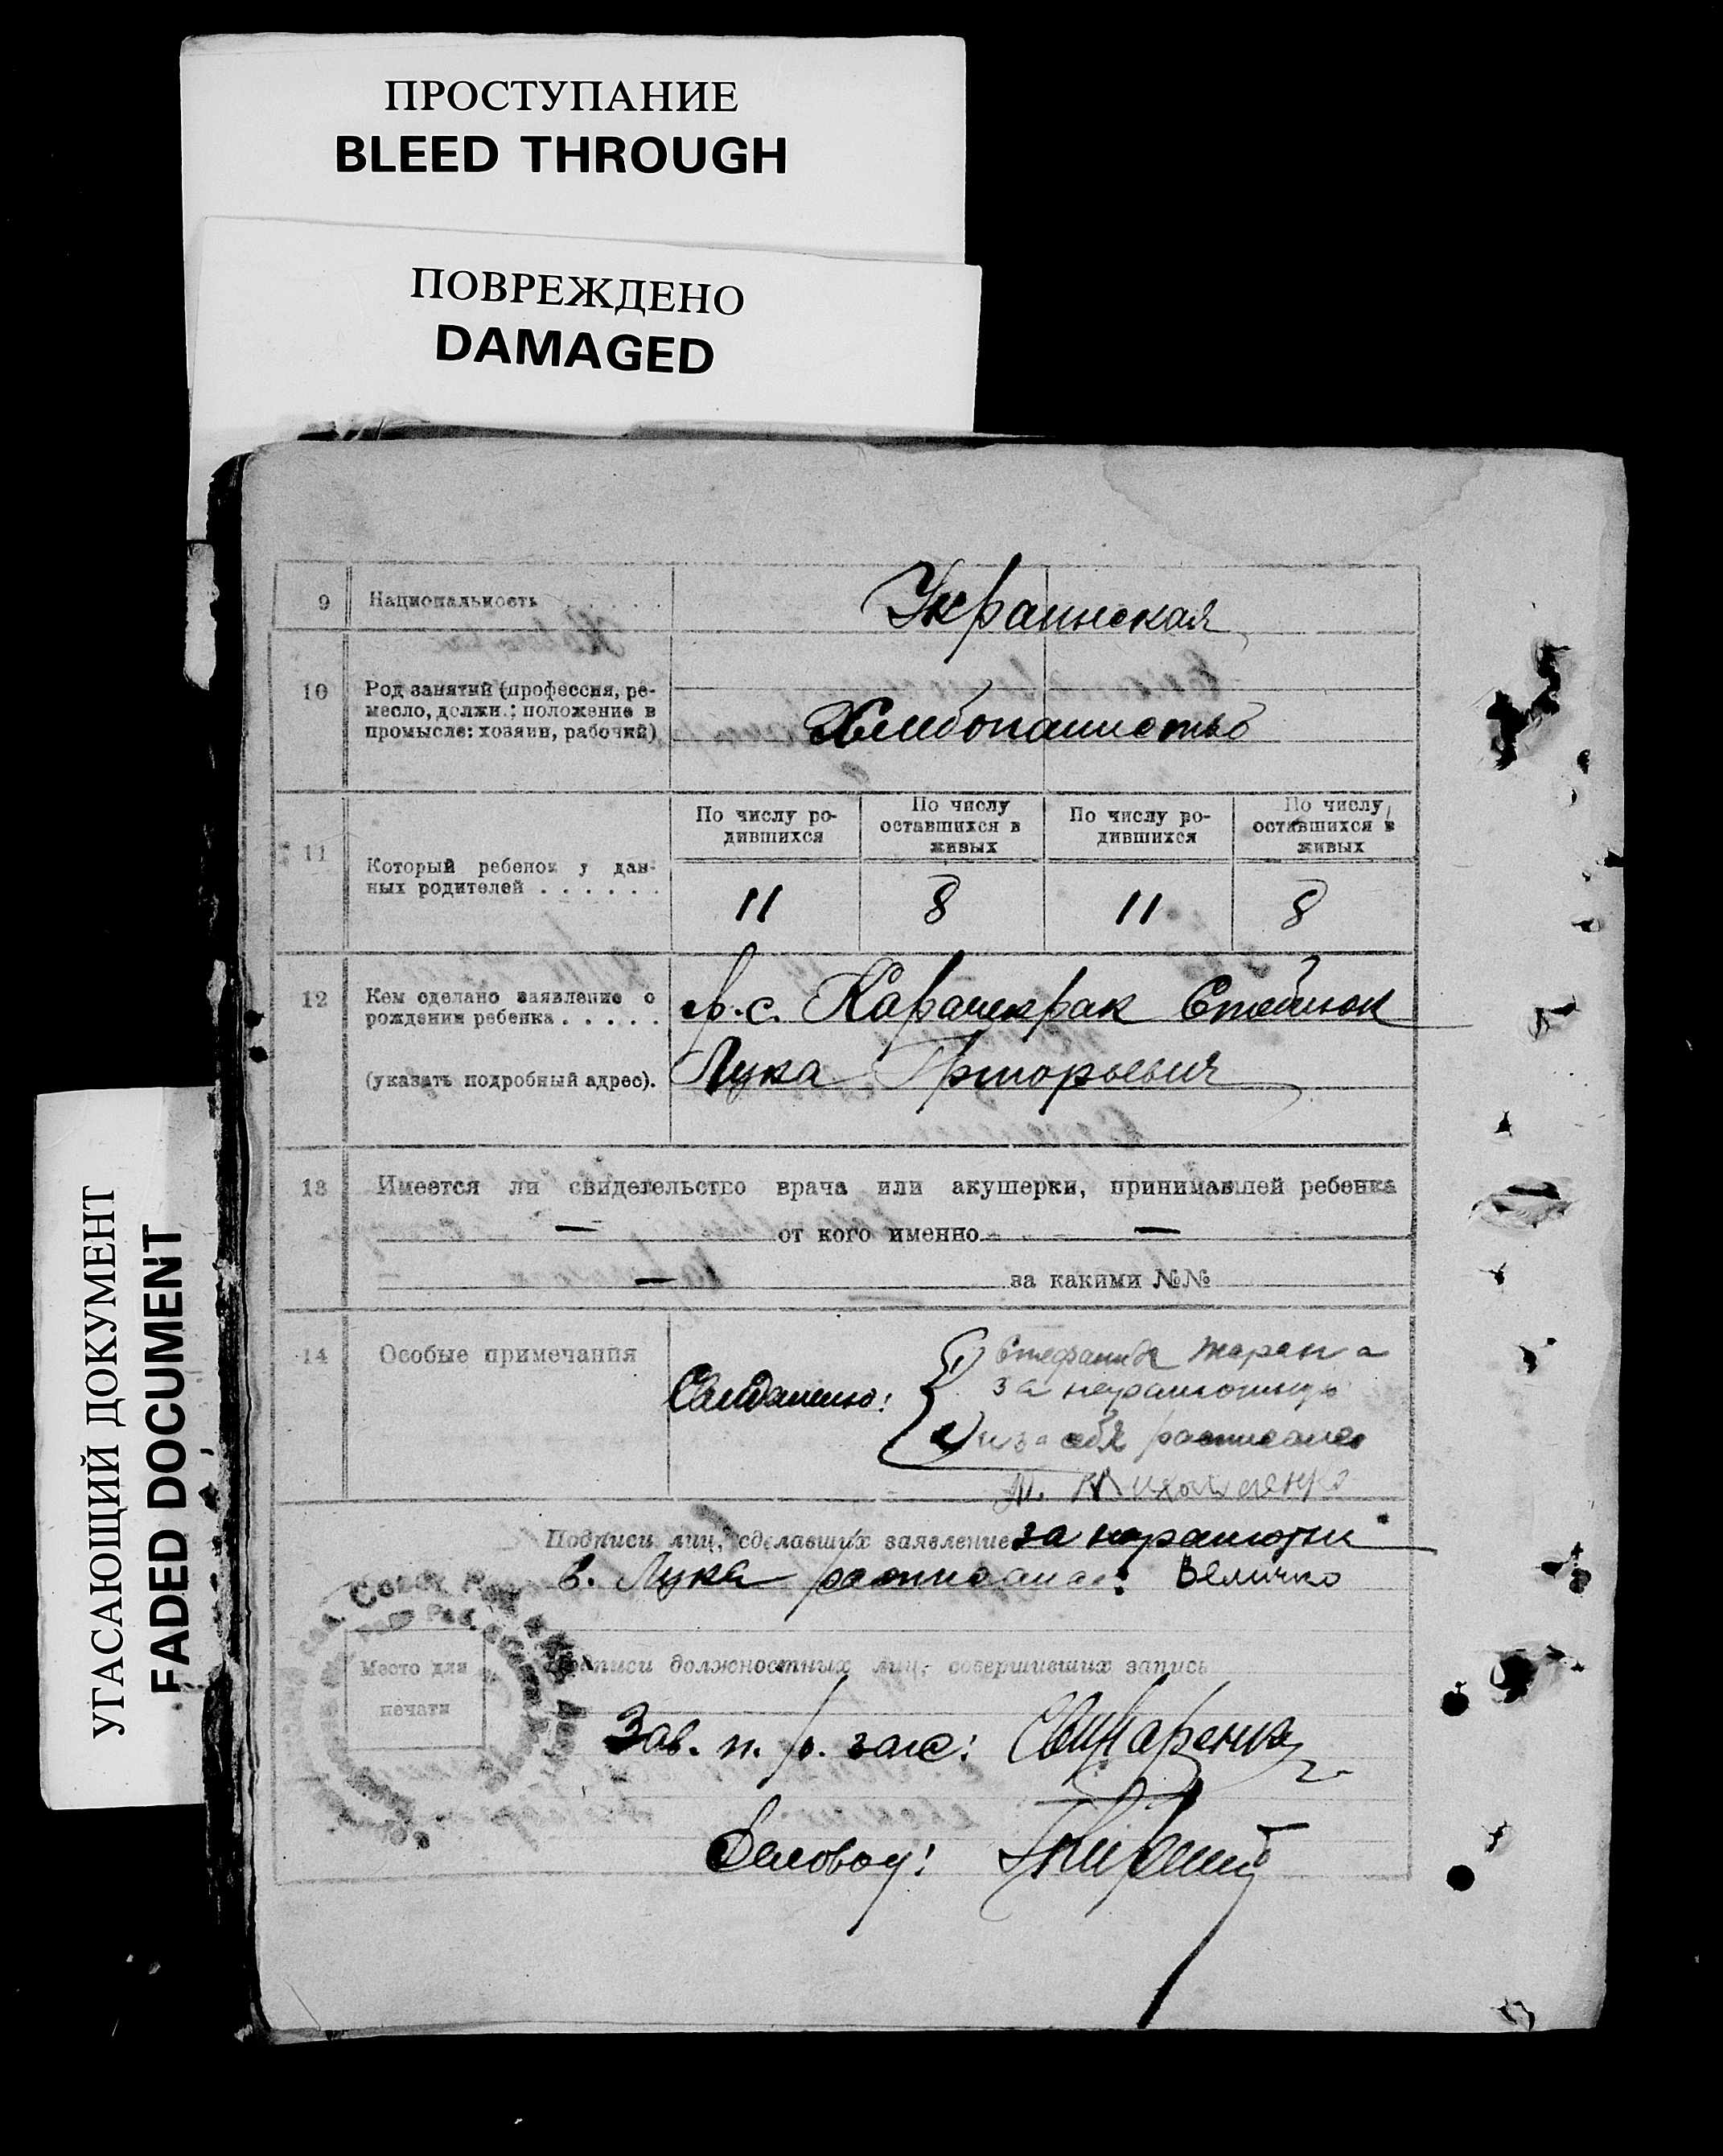 ПРОСТУПАНИЕ
BLEED THROUGH
ПОВРЕЖДЕНО
DAMAGED
УГАСАЮЩИЙ ДОКУМЕНТ
FADED DOCUMENT
9 Национальность . . . . . Украинская
10 Род занятий (профессия, ре-
месло, должн.; положение в
промысле: хозяин, рабочий)
Хлебопашество
По числу ро-
дившихся
По числу
оставшихся в
живых
По числу ро-
дившихся
По числу
оставшихся в
живых
11 Который ребенок у дан-
ных родителей . . . . . .
11 8 11 8
12 Кем сделано заявление о
рождении ребенка . . . . .
(указать подробный адрес).
гр. с. Карачекрак
Лука Григорьевич
13 Имеется ли свидетельство врача или акушерки, принимавшей ребенка
— от кого именно —
— за какими №№
14 Особые примечания
Свидетели:
1)
за неграмотную
2) и за себя расписался
Подписи лиц, сделавших заявление за неграмотн
Лука расписался: Величко
Место для
печати
Подписи должностных лиц, совершивших запись
Зав. п. загс:
Деловод: